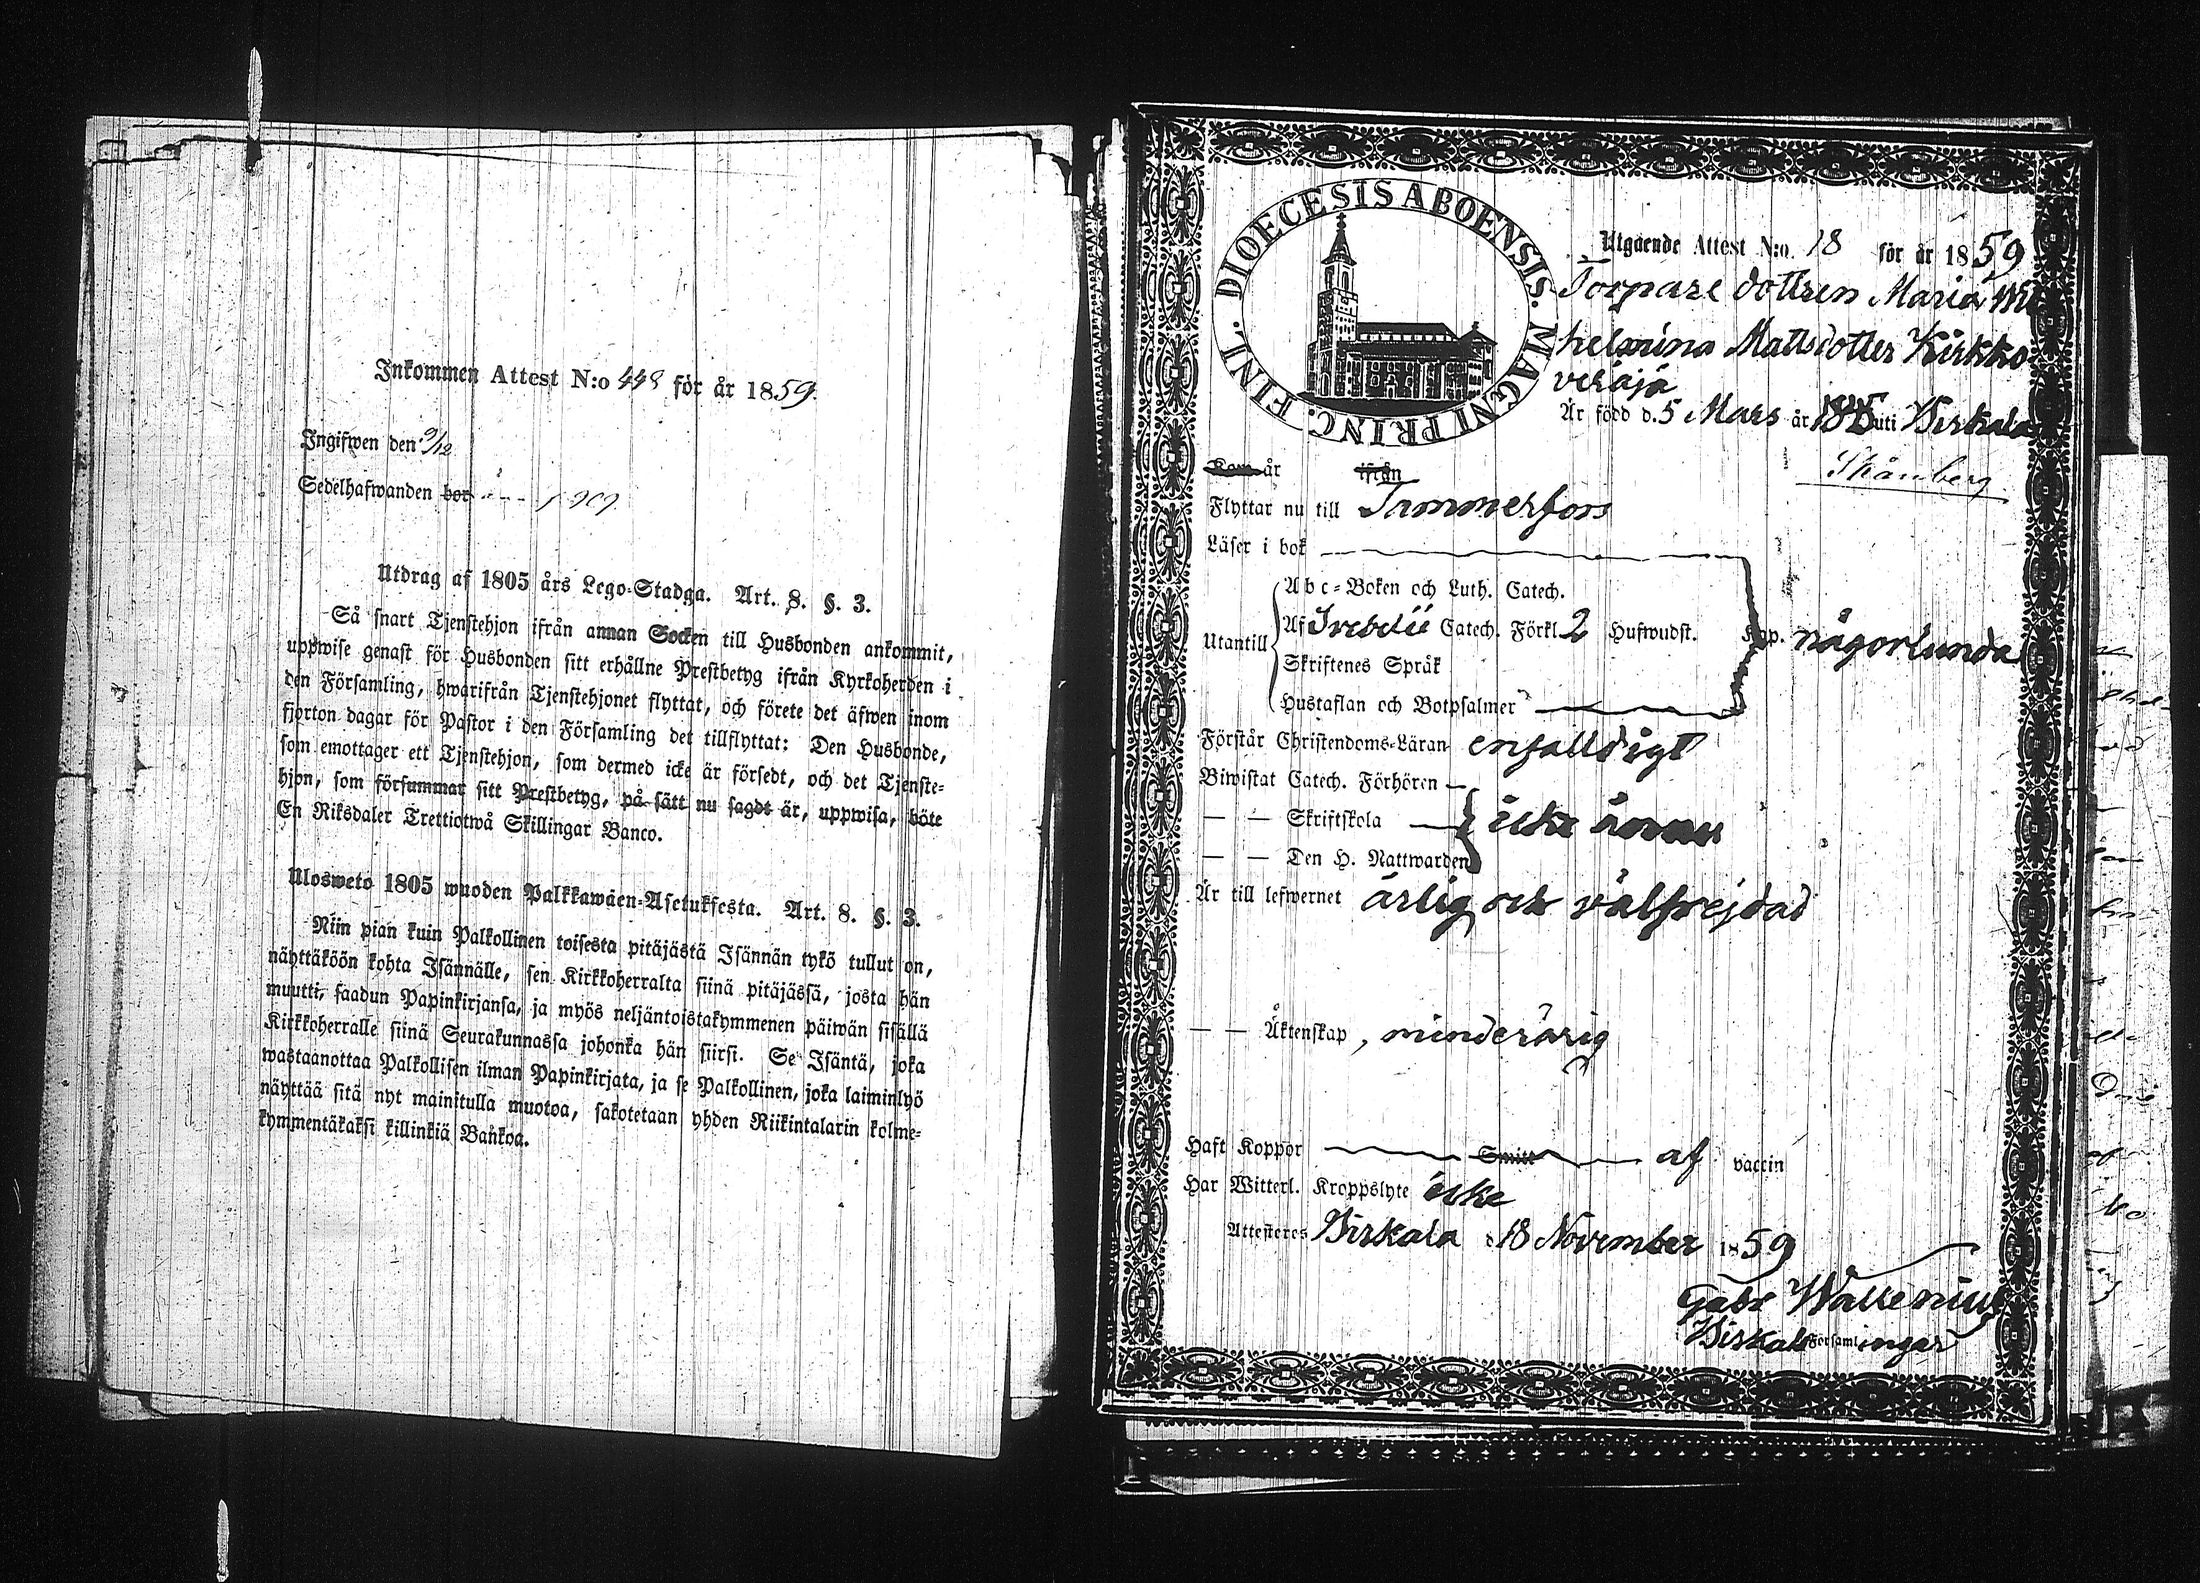 Inkommen Attest N:o 448 för år 1859.
Ingifwen den 9/12
Sedelhafwanden bor
Utdrag af 1805 års Lego-Stadga. Art. 8. §. 3.
Så snart Tjenstehjon ifrån annan Socken till Husbonden ankommit,
uppwise genast för Husbonden sitt erhållne Prestbetyg ifrån Kyrkoherden i
den Församling, hwarifrån Tjenstehjonet flyttat, och förete det äfwen inom
fjorton dagar för Pastor i den Församling det tillflyttat: Den Husbonde,
som emottager ett Tjenstehjon, som dermed icke är försedt, och det Tjenste-
hjon, som försummar sitt Prestbetyg, på sätt nu sagdt är, uppwisa, böte
En Riksdaler Trettiotwå Skillingar Banco.
Ulosweto 1805 wuoden Palkkawäen-Asetuksesta. Art. 8. §. 3.
Niin pian kuin Palkollinen toisesta pitäjästä Isännän tykö tullut on,
näyttäköön kohta Isännälle, sen Kirkkoherralta siinä pitäjässä, josta hän
muutti, saadun Papinkirjansa, ja myös neljäntoistakymmenen päiwän sisällä
Kirkkoherralle siinä Seurakunnassa johonka hän siirsi. Se Isäntä, joka
wastaanottaa Palkollisen ilman Papinkirjata, ja se Palkollinen, joka laiminlyö
näyttää sitä nyt mainitulla muotoa, sakotetaan yhden Riikintalarin kolme-
kymmentäkaksi killinkiä Bankoa.
DIOECESIS ABOENSIS. MAGNI PRINC. FINL.
Utgående Attest N:o. 18 för år 1859
Torpare dottren Maria Wil
helmina Mattsdotter Kirkko
veräjä
Är född d. 5 Mars år uti Birkala
Skånberg
Kom år ifrån
Flyttar nu till Tammerfors
Läser i bok
Abc-Boken och Luth. Catech.
Utantill Af Svebelii Catech. Förkl. 2 Hufwudst. Kap. någorlunda
Skriftenes Språk
Hustaflan och Botpsalmer
Förstår Christendoms-Läran enfalldigt
Biwistat Catech. Förhören
— — Skriftskola icke ännu
— — Den H. Nattwarden
Är till lefwernet ärlig och välfrejdad
— — Äktenskap, minderårig
Haft Koppor Smitt af vaccin
Har Witterl. Kroppslyte icke
Attesteres Birkala d 18 November 1859
Gabr Wallenius
Birkala Församlingar